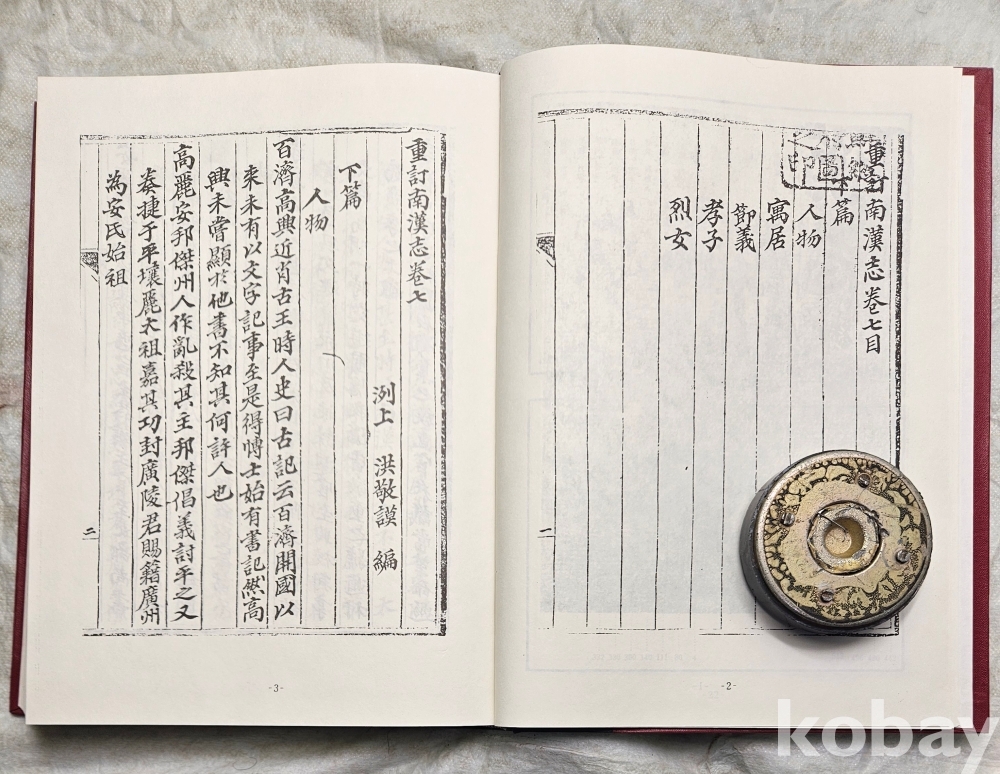 重訂南漢志卷七目
下篇
人物
寓居
節義
孝子
烈女
一
-2-
重訂南漢志卷七
洌上 洪敬謨 編
下篇
人物
百濟高興近肖古王時人史曰古記云百濟開國以
來未有以文字記事至是得博士始有書記然高
興未嘗顯於他書不知其何許人也
高麗安邦傑州人作亂殺其主邦傑倡義討平之又
奏捷于平壤麗太祖嘉其功封廣陵君賜籍廣州
為安氏始祖
二
-3-
kobay